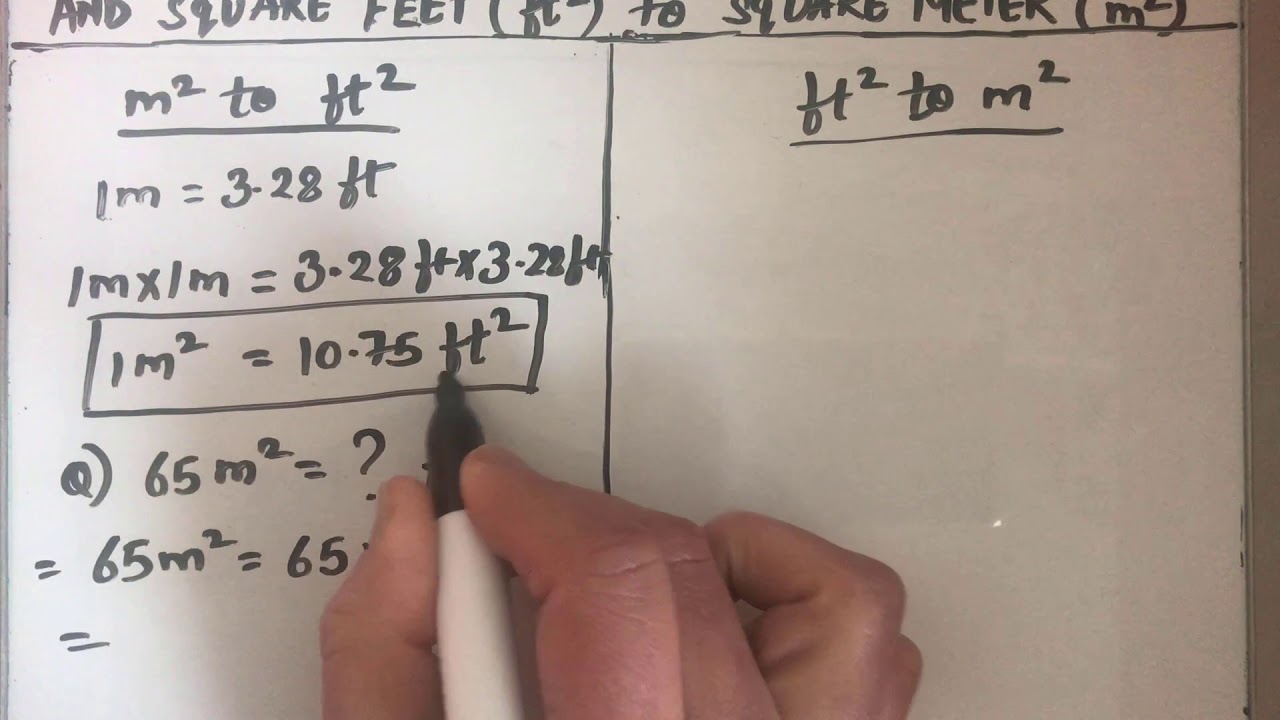 AND SQUARE FEET (ft²) to SQUARE METER (m²)
m² to ft²
1m = 3.28 ft
1m x 1m = 3.28 ft x 3.28 ft
1m² = 10.75 ft²
Q) 65m² = ?
= 65m² = 65
=
ft² to m²